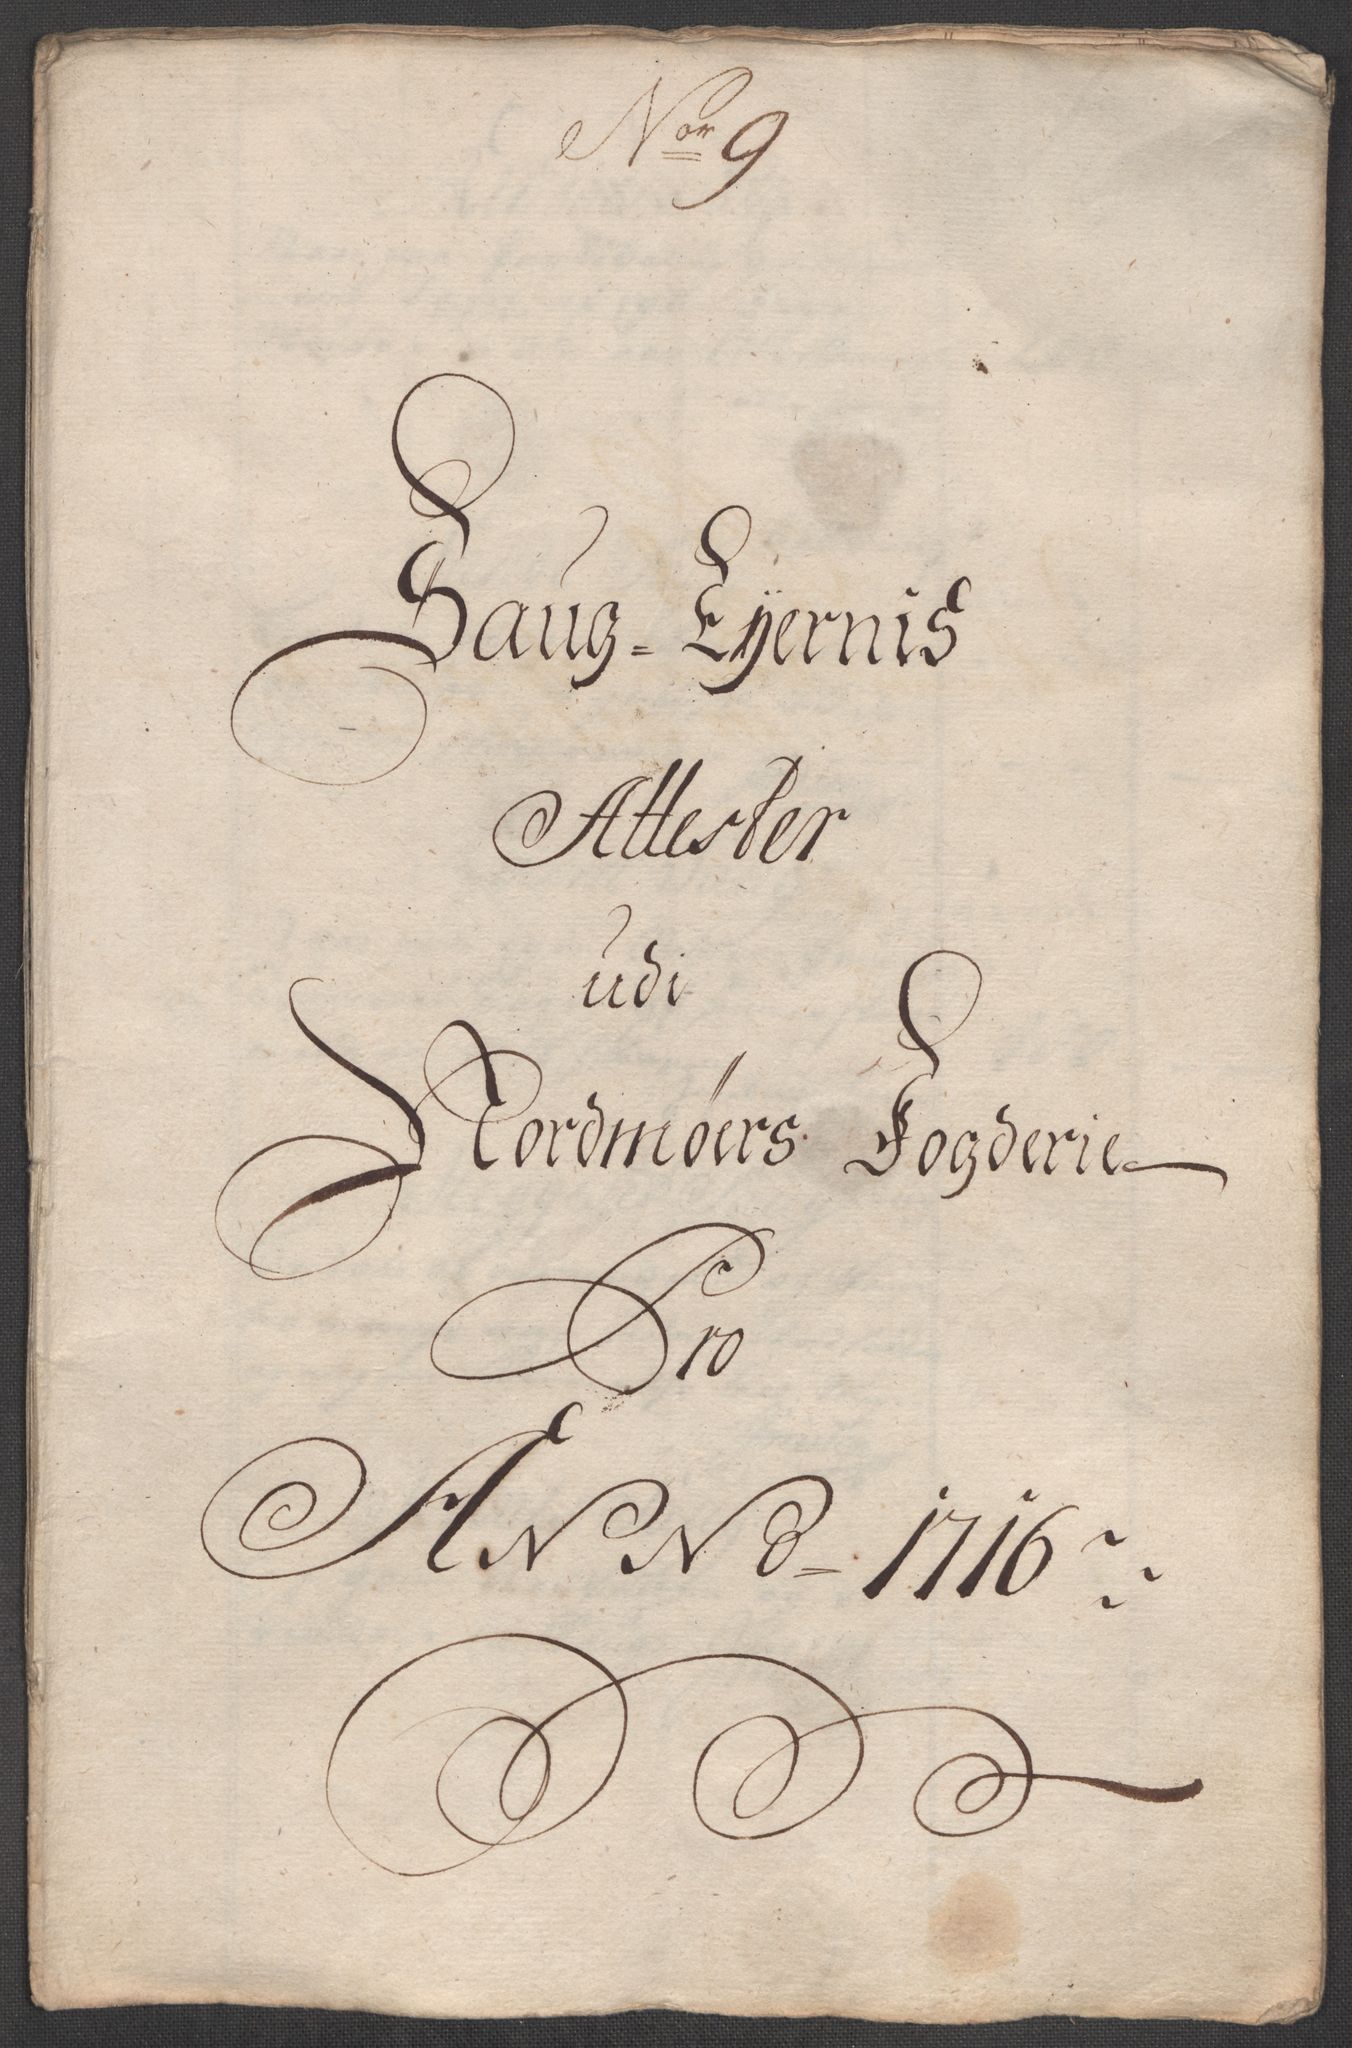 Nor 9
Saug-Eyernis
Attester
udi
Nordmøers Fogderie
Pro
ANNO 1716